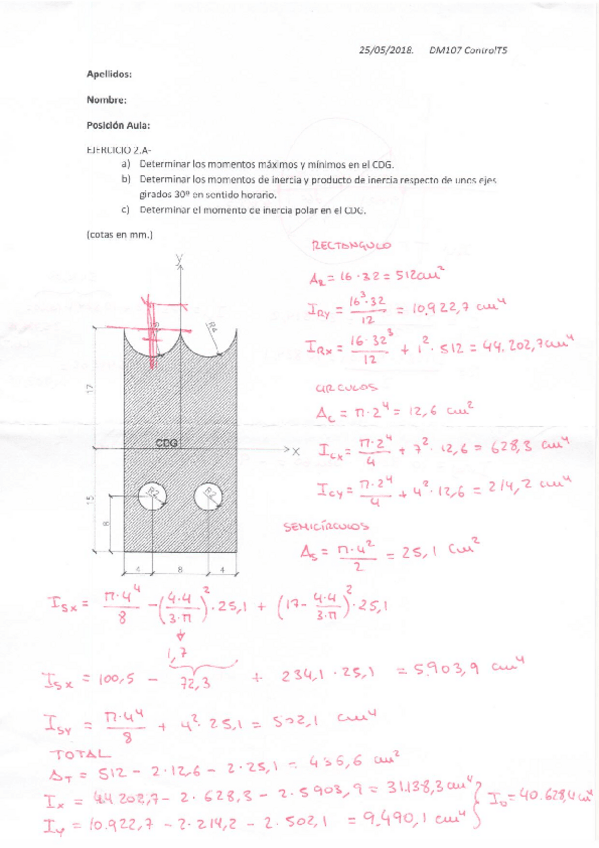 25/05/2018. DM107 ControlT5
Apellidos:
Nombre:
Posición Aula:
EJERCICIO 2.A-
a) Determinar los momentos máximos y mínimos en el CDG.
b) Determinar los momentos de inercia y producto de inercia respecto de unos ejes
girados 30º en sentido horario.
c) Determinar el momento de inercia polar en el CDG.
(cotas en mm.)
RECTANGULO
A_R = 16·32 = 512 cm²
I_Ry = 16³·32 / 12 = 10.922,7 cm⁴
I_Rx = 16·32³ / 12 + 1²·512 = 44.202,7 cm⁴
CIRCULOS
A_C = π·2⁴ = 12,6 cm²
I_Cx = π·2⁴ / 4 + 7²·12,6 = 628,3 cm⁴
I_Cy = π·2⁴ / 4 + 4²·12,6 = 214,2 cm⁴
SEMICÍRCULOS
A_S = π·4² / 2 = 25,1 cm²
y
R4
17
CDG
x
R2
R2
15
8
4
8
4
I_Sx = π·4⁴ / 8 - (4·4 / 3·π)²·25,1 + (17 - 4·4 / 3·π)²·25,1
1,7
I_Sx = 100,5 - 72,3 + 234,1·25,1 = 5.903,9 cm⁴
I_Sy = π·4⁴ / 8 + 4²·25,1 = 502,1 cm⁴
TOTAL
A_T = 512 - 2·12,6 - 2·25,1 = 436,6 cm²
I_x = 44.202,7 - 2·628,3 - 2·5903,9 = 31.138,3 cm⁴
I_y = 10.922,7 - 2·214,2 - 2·502,1 = 9.490,1 cm⁴
I_0 = 40.628,4 cm⁴